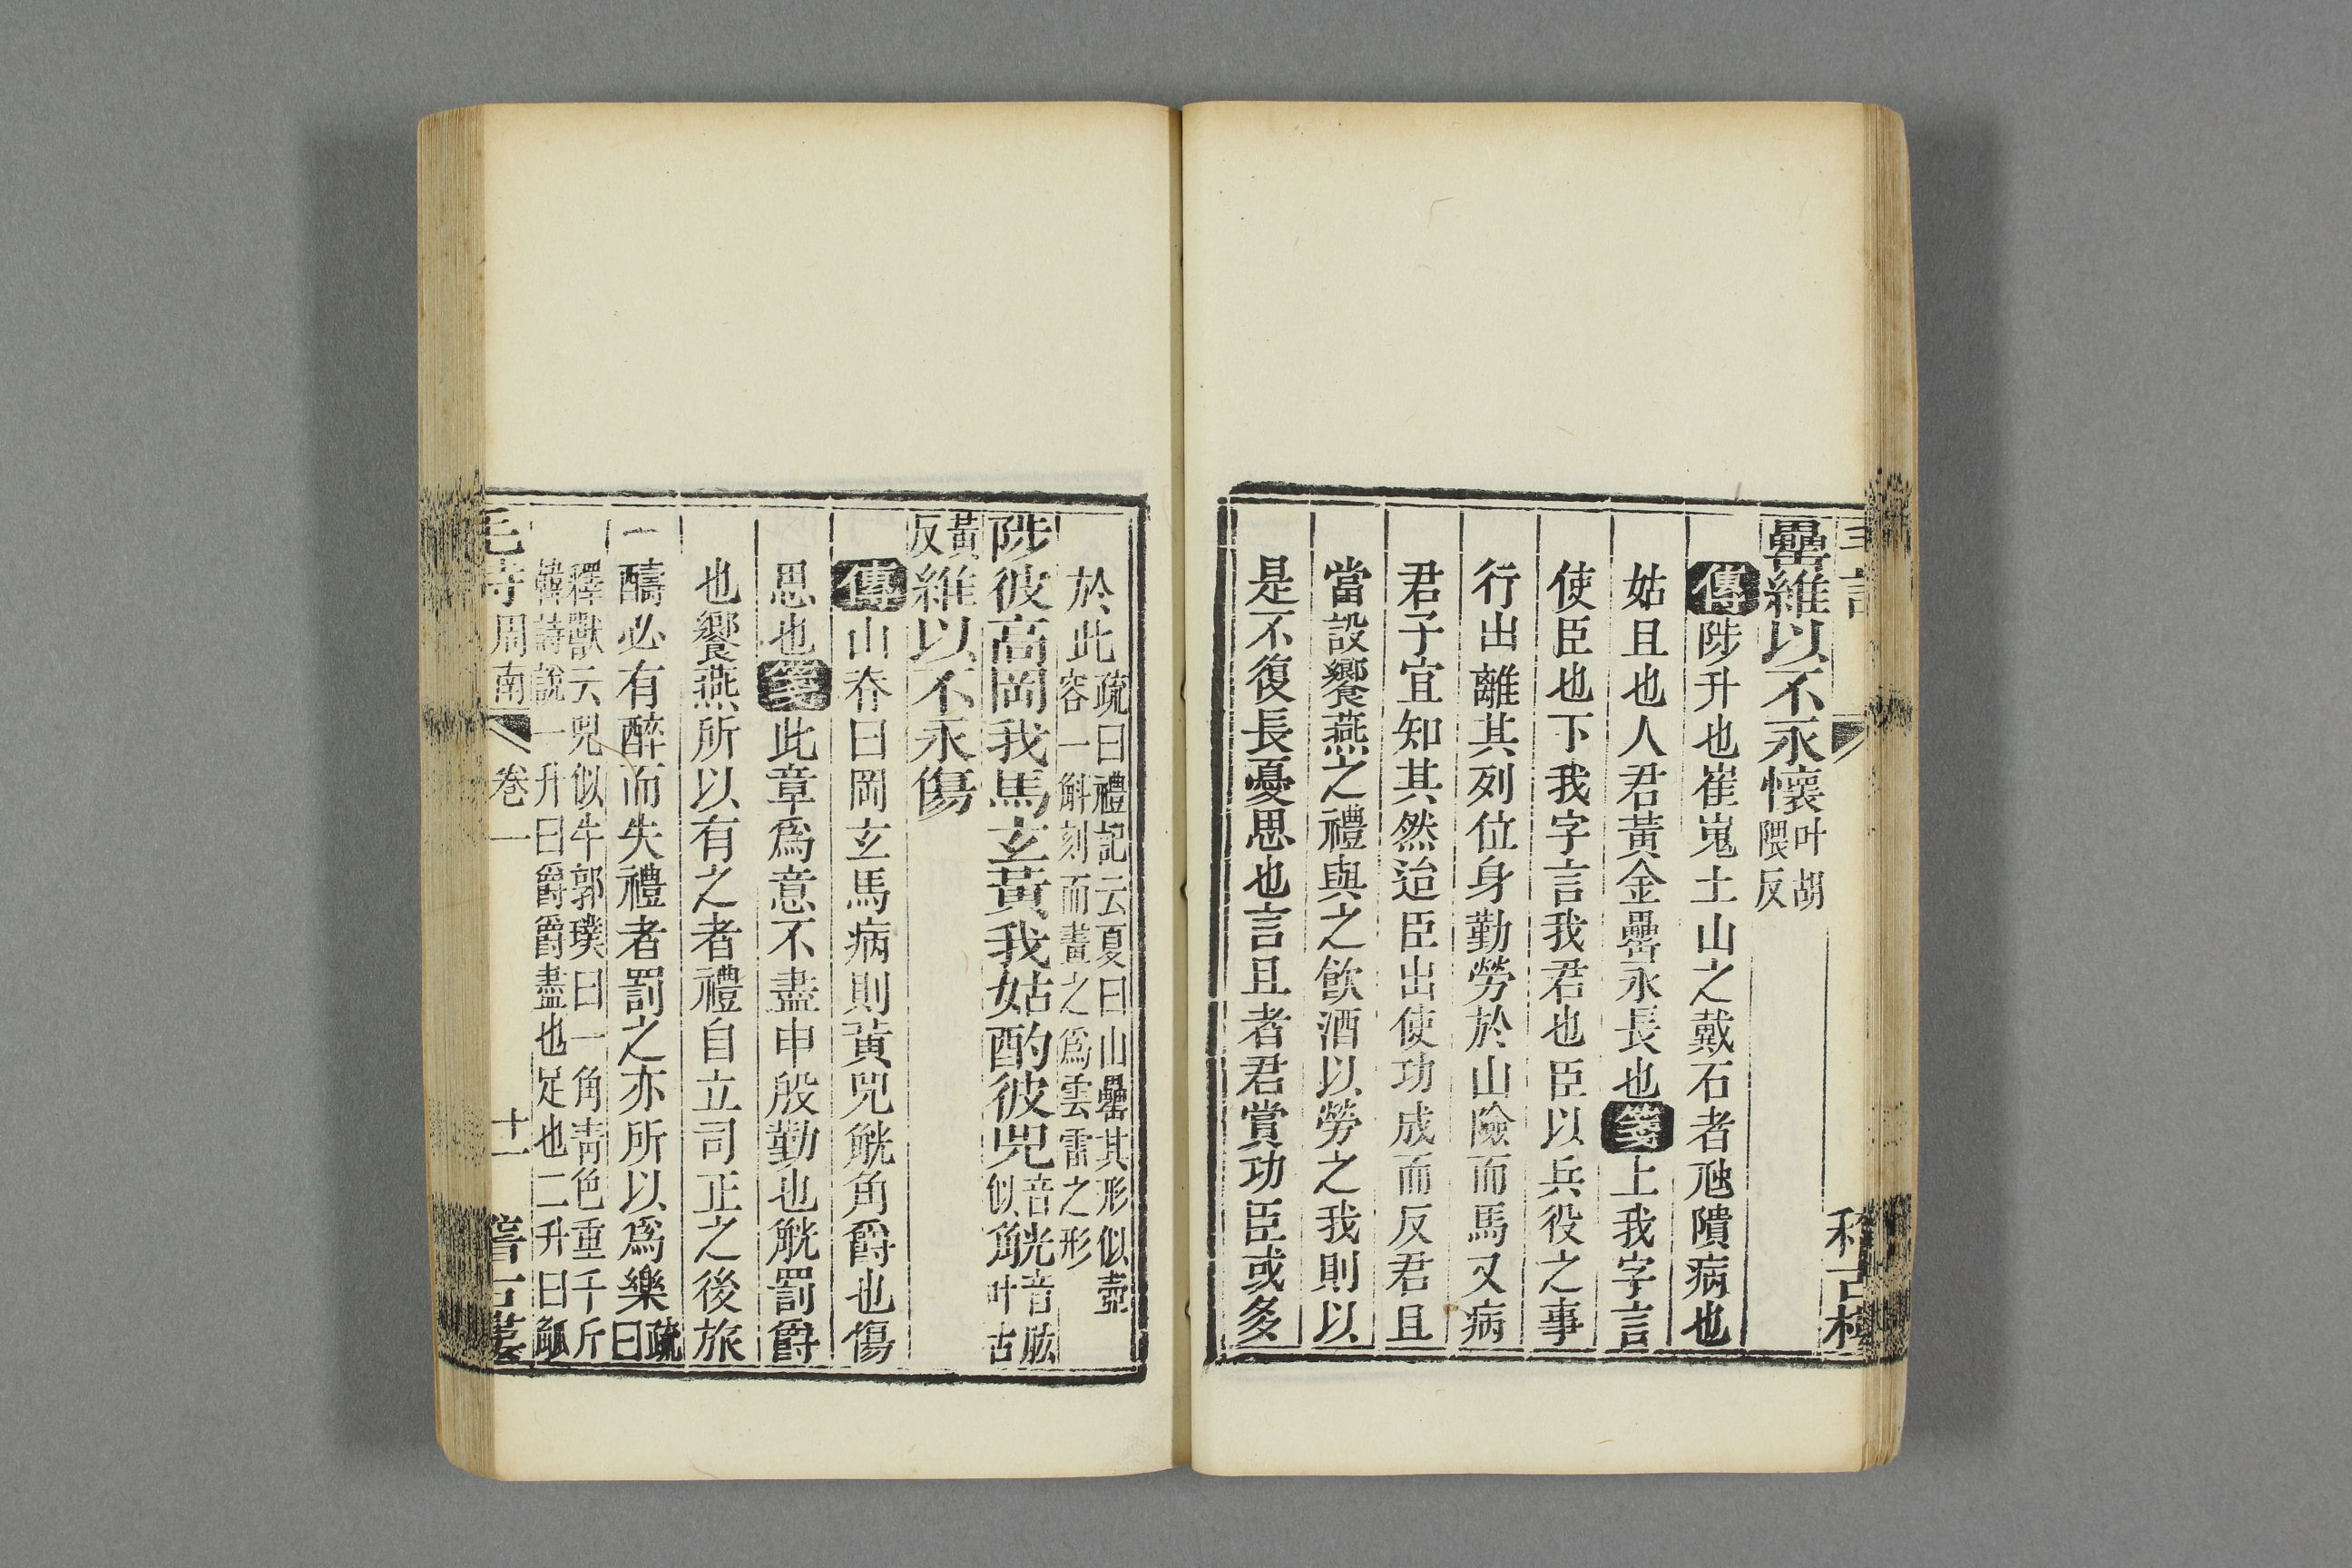 罍維以不永懷叶胡隈反
傳陟升也崔嵬土山之戴石者虺隤病也
姑且也人君黃金罍永長也箋上我字言
使臣也下我字言我君也臣以兵役之事
行出離其列位身勤勞於山險而馬又病
君子宜知其然迨臣出使功成而反君且
當設饗燕之禮與之飲酒以勞之我則以
是不復長憂思也言且者君賞功臣或多
於此疏曰禮記云夏曰山罍其形似壺容一斛刻而畫之爲雲雷之形
陟彼高岡我馬玄黃我姑酌彼兕音似觥音肱叶古
黃反維以不永傷
傳山脊曰岡玄馬病則黃兕觥角爵也傷
思也箋此章爲意不盡申殷勤也觥罰爵
也饗燕所以有之者禮自立司正之後旅
醻必有醉而失禮者罰之亦所以爲樂疏曰
釋獸云兕似牛郭璞曰一角靑色重千斤
韓詩說一升曰爵爵盡也足也二升曰觚
毛詩周南 卷一 十一